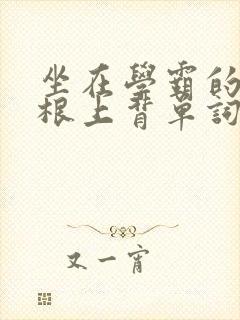 坐在學霸的
根上背單詞
又一宵